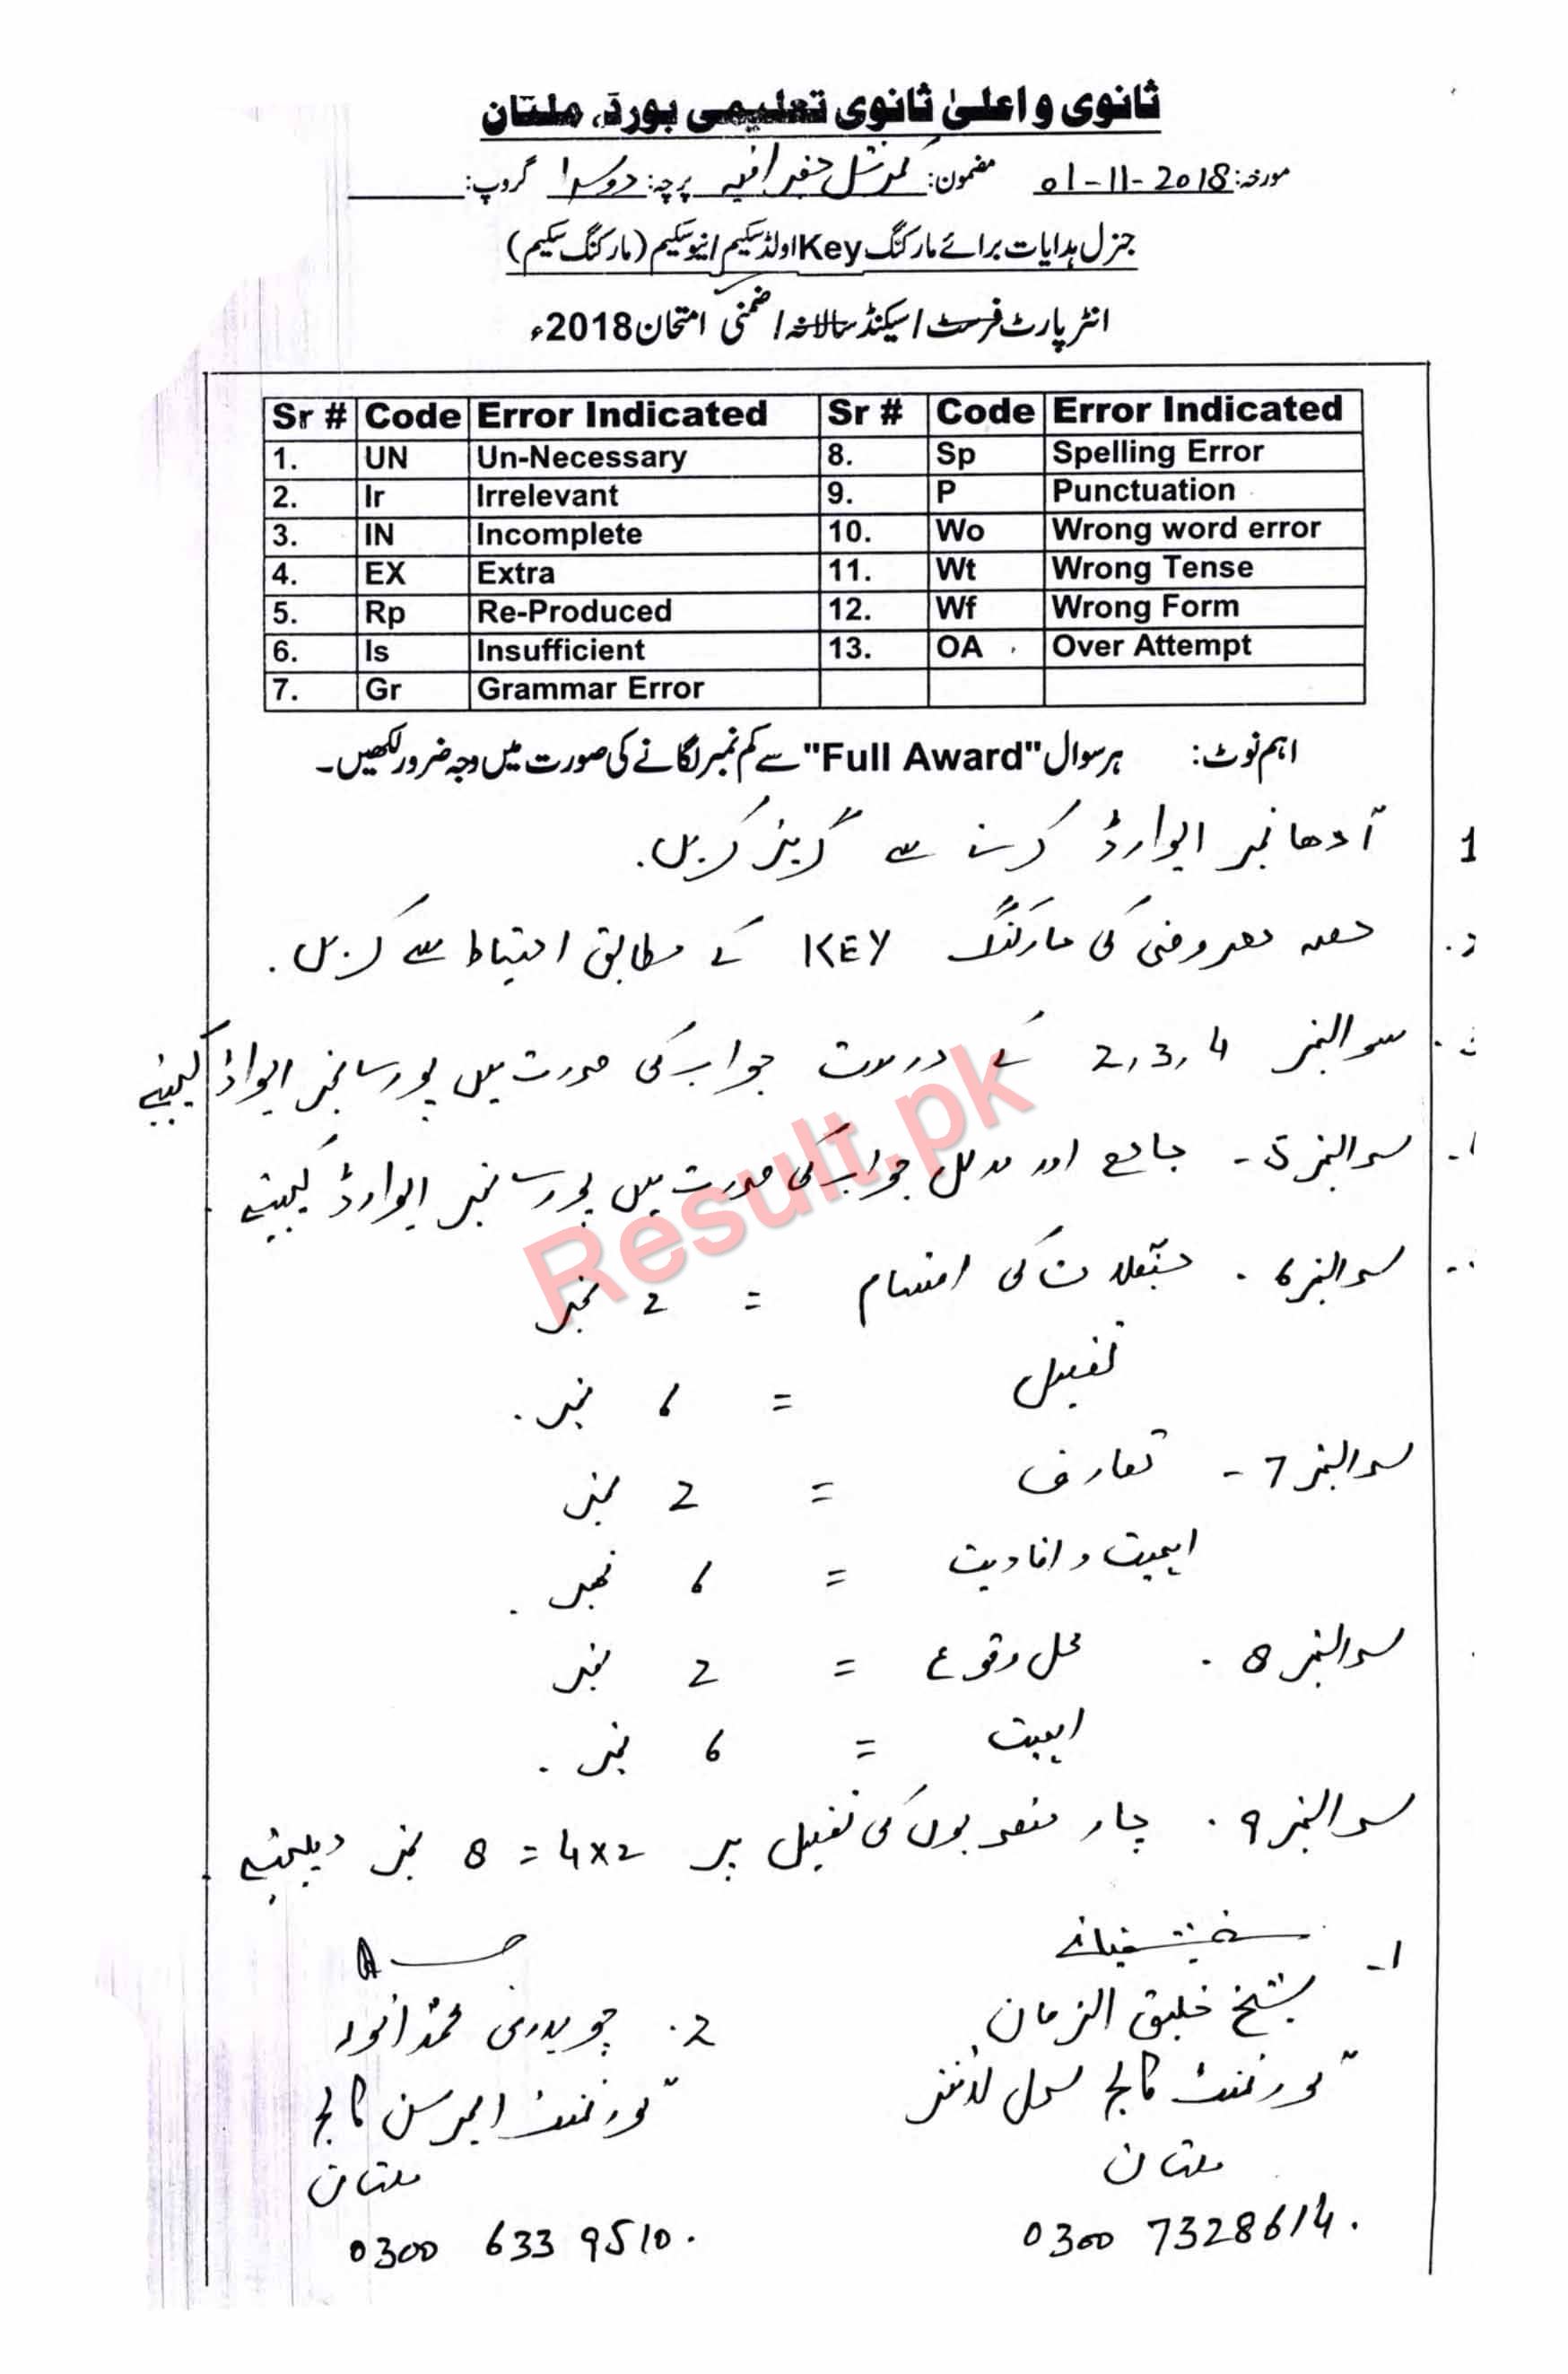 ثانوی و اعلیٰ ثانوی تعلیمی بورڈ، ملتان
مورخہ: 01-11-2018 مضمون: کمرشل جغرافیہ پرچہ: دوسرا گروپ:
جنرل ہدایات برائے مارکنگ Key اولڈ سکیم / نیو سکیم (مارکنگ سکیم)
انٹر پارٹ فرسٹ / سیکنڈ سالانہ / ضمنی امتحان 2018ء
Sr # Code Error Indicated Sr # Code Error Indicated
1. UN Un-Necessary 8. Sp Spelling Error
2. Ir Irrelevant 9. P Punctuation
3. IN Incomplete 10. Wo Wrong word error
4. EX Extra 11. Wt Wrong Tense
5. Rp Re-Produced 12. Wf Wrong Form
6. Is Insufficient 13. OA Over Attempt
7. Gr Grammar Error
اہم نوٹ: ہر سوال "Full Award" سے کم نمبر لگانے کی صورت میں وجہ ضرور لکھیں۔
1 آدھا نمبر ایوارڈ کرنے سے گریز کریں.
حصہ معروضی کی مارکنگ KEY کے مطابق احتیاط سے کریں.
سوالنمبر 2,3,4 کے درست جواب کی صورت میں پورے نمبر ایوارڈ کیجیئے
سوالنمبر 5 - جامع اور مدلل جواب کی صورت میں پورے نمبر ایوارڈ کیجیئے.
سوالنمبر 6 . کی اقسام = 2 نمبر
تفصیل = 6 نمبر.
سوالنمبر 7 - تعارف = 2 نمبر
اہمیت و افادیت = 6 نمبر.
سوالنمبر 8 . محل وقوع = 2 نمبر
اہمیت = 6 نمبر.
سوالنمبر 9 . چار منصوبوں کی تفصیل پر 4x2 = 8 نمبر دیجیئے.
1- شیخ خلیق الزمان
گورنمنٹ کالج سول لائنز
ملتان
0300 7328614.
2. چوہدری محمد انور
گورنمنٹ ایمرسن کالج
ملتان
0300 6339510.
Result.pk